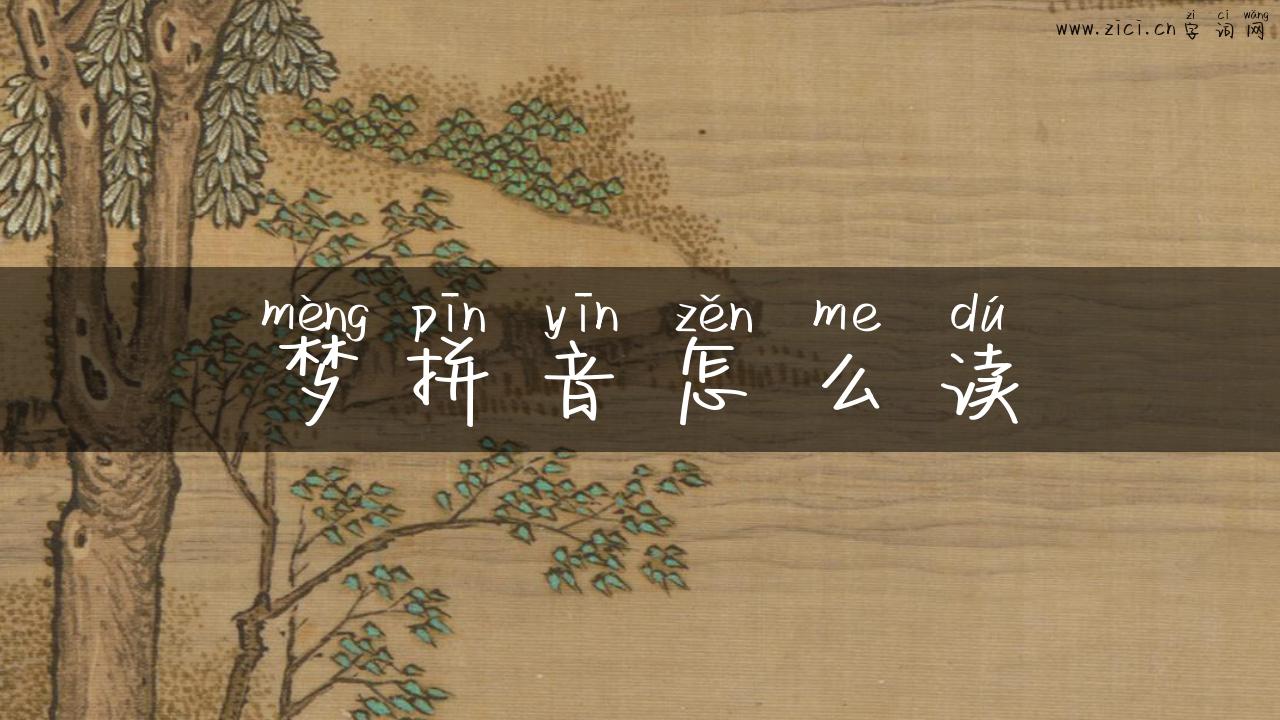 zì cí wǎng
www.zici.cn 字词网
mèng pīn yīn zěn me dú
梦拼音怎么读